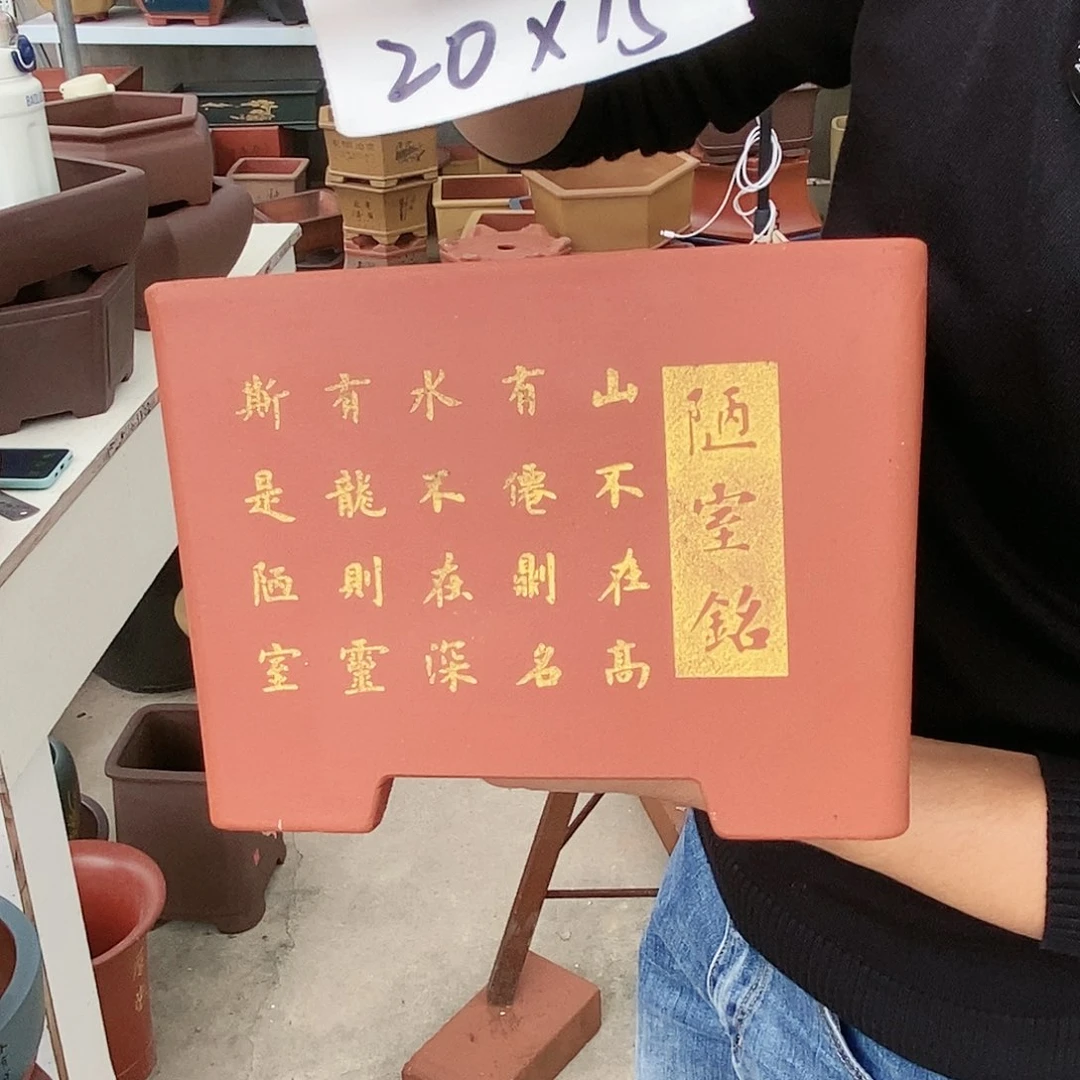 20×15
陋室銘
山不在高
有僊則名
水不在深
有龍則靈
斯是陋室